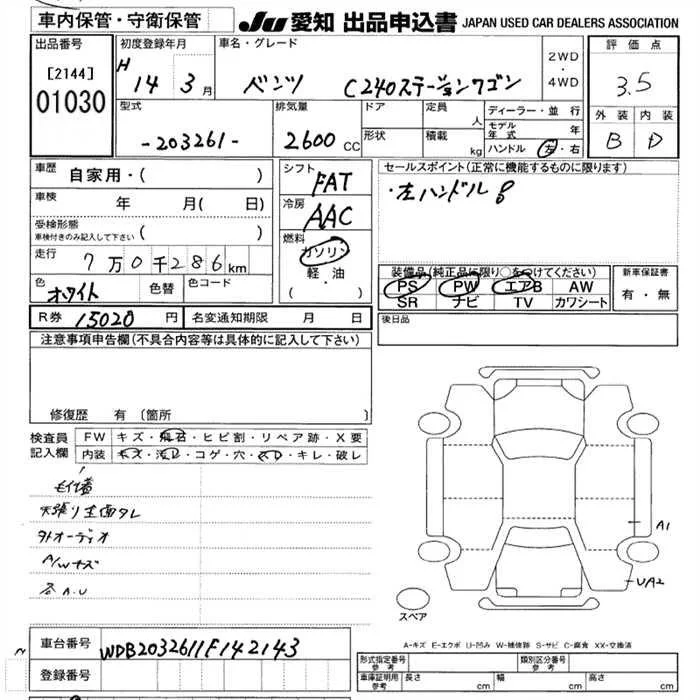 車内保管・守衛保管
JU 愛知 出品申込書 JAPAN USED CAR DEALERS ASSOCIATION
出品番号
[2144]
01030
初度登録年月
H 14 年 3 月
車名・グレード
ベンツ C240ステーションワゴン
2WD
・
4WD
評価点
3.5
外装 内装
B D
型式
-203261-
排気量
2600 CC
ドア
形状
定員 人
積載 kg
ディーラー・並行
モデル年式 年
ハンドル 左・右
車歴 自家用・( )
車検 年 月( 日)
受検形態
車検付きのみ記入して下さい ( )
走行 7万0千286km
色 ホワイト
色替
色コード
シフト FAT
冷房 AAC
燃料
ガソリン
軽・油
( ・ )
セールスポイント(正常に機能するものに限ります)
・左ハンドル
装備品(純正品に限り○をつけてください)
PS PW エアB AW
SR ナビ TV カワシート
新車保証書
有・無
R券 15020 円
名変通知期限 月 日
後日品
注意事項申告欄(不具合内容等は具体的に記入して下さい)
修復歴 有 〔箇所 〕
検査員記入欄
FW キズ・飛石・ヒビ割・リペア跡・X要
内装 キズ・汚レ・コゲ・穴・スレ・キレ・破レ
天張り全面タレ
外オーディオ
A/Wキズ
各A.U
A1
UA2
スペア
A-キズ E-エクボ U-凹み W-補修跡 S-サビ C-腐食 XX-交換済
車台番号 WDB2032611F142143
登録番号
形式指定番号 参考
類別区分番号 参考
車庫証明用 参考 長さ cm 幅 cm 高さ cm